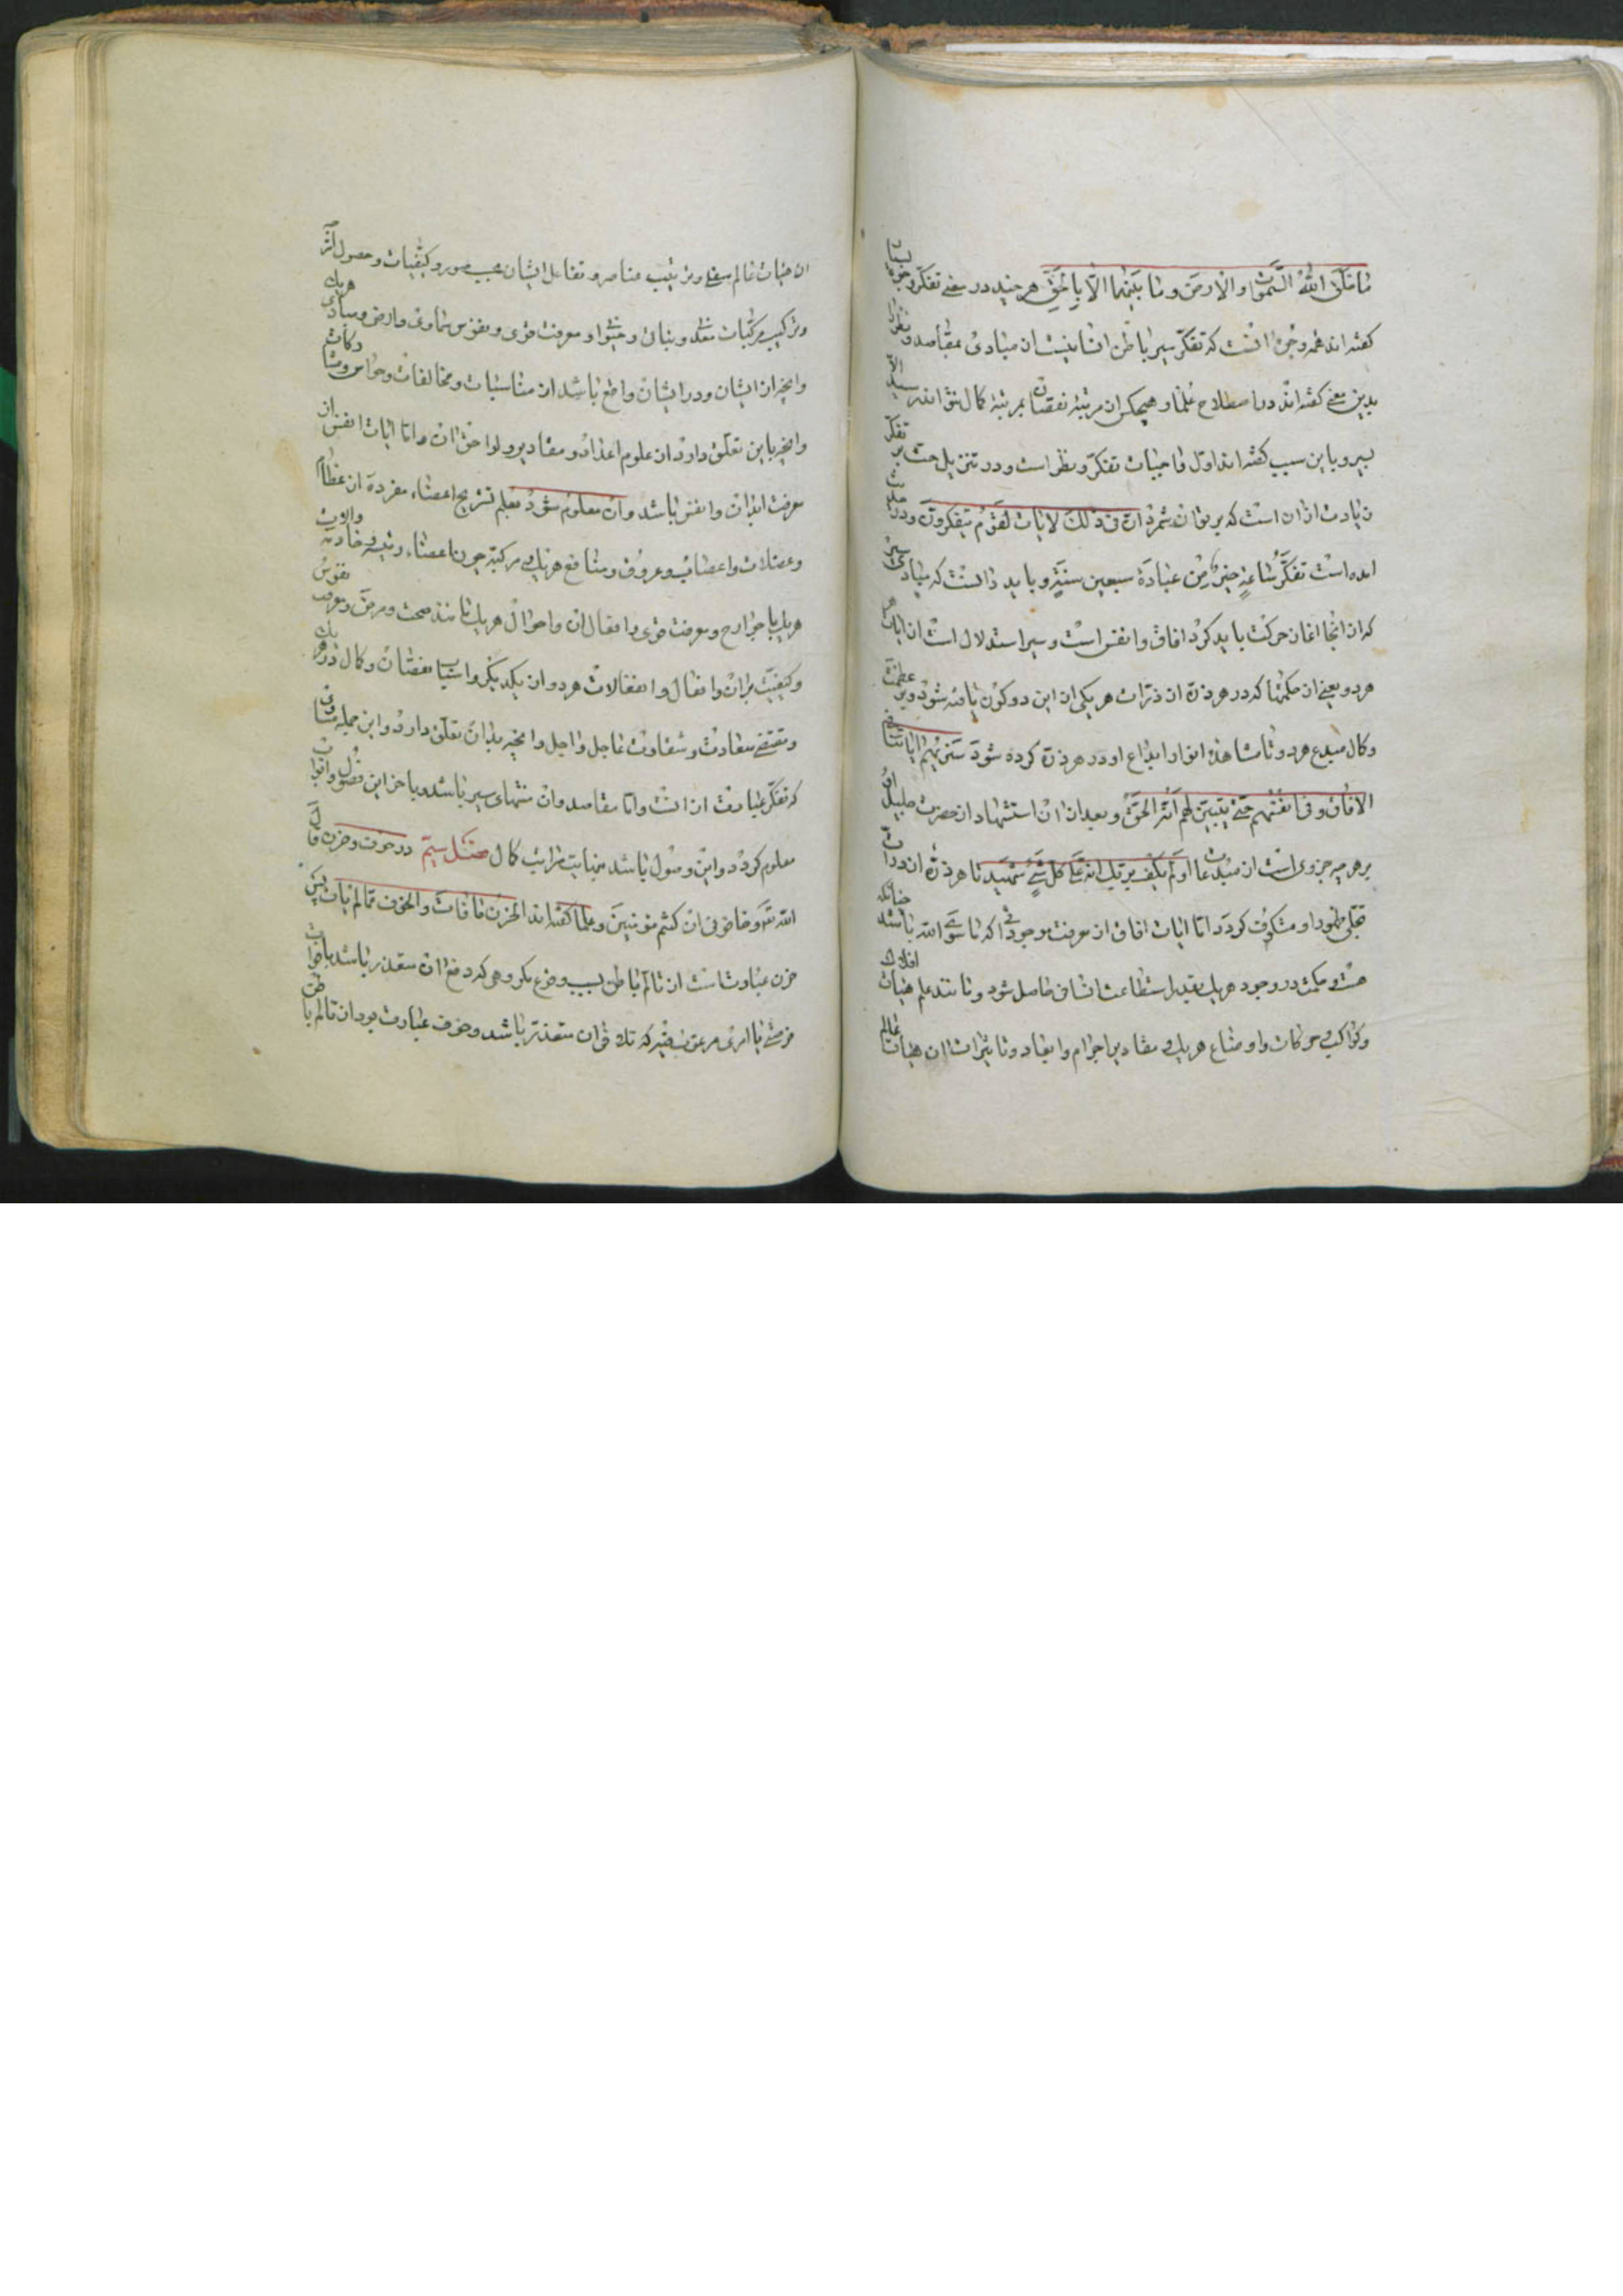 ما خلق الله السموات والارض وما بینهما الا بالحق هر چند در معنی تفکر وجوه بسیار
کفته اند همه وجوه انست که تفکر سیر باطن انسانیست از مبادی بمقاصد و نظر را
بدین معنی کفته اند در اصطلاح علما و هیچکس از مرتبهٔ نقصان بمرتبهٔ کمال نتواند رسید الا
بسیر و باین سبب کفته اند اول واجبات تفکر و نظر است و در تنزیل حث بر تفکر
زیادت از ان است که بر توان شمرد ان فی ذلک لایات لقوم یتفکرون و در حدیث
امده است تفکر ساعة خیر من عبادة سبعین سنة و باید دانست که مبادی سیر
که از انجا اغاز حرکت باید کرد افاق و انفس است و سیر استدلال است از ایات هر
هر دو یعنی از حکمتها که در هر ذرهٔ از ذرات هر یکی از این دو کون یافته شود بر عظمت
و کمال مبدع هر دو تا مشاهدهٔ انوار ابداع او در هر ذرهٔ کرده شود سنریهم ایاتنا فی
الافاق و فی انفسهم حتی یتبین لهم انه الحق و بعد از ان استشهاد از حضرت جلیل او
بر هر چه جزوی است از مبدعات اولم یکف بربک انه علی کل شئ شهید تا هر ذرهٔ از ذرات
تجلی ظهور او مکشوف کردد اما ایات افاق از معرفت موجوداتی که ما سوی الله باشد چنانکه
هست و حکمت در وجود هر یک بقدر استطاعت انسانی حاصل شود و مانند علم هیأت افلاک
و کواکب و حرکات و اوضاع هر یک و مقادیر اجرام و ابعاد و تاثیرات ان هیأت عالم
ان هیأت عالم سفلی و ترتیب عناصر و تفاعل ایشان بحسب صور و کیفیات و حصول امزجه
و ترکیب مرکبات معدنی و نباتی و حیوانی و معرفت قوی و نفوس سماوی و ارضی و مبادی هر یک
و انچه از ایشان و در ایشان واقع باشد از مناسبات و مخالفات و خواص و مشارکات
و انچه باین تعلق دارد از علوم اعداد و مقادیر و لواحق ان و اما ایات انفس از
معرفت ابدان و انفس باشد و ان معلوم شود بعلم تشریح اعضاء مفرده از عظام
و عضلات و اعصاب و عروق و منافع هر یک و مرکبة چون اعضاء رئیسه و خادمه و ادوات
هر یک یا جوارح و معرفت قوی و افعال ان و احوال هر یک مانند صحت و مرض و معرفت نفوس
و کیفیت بر ابدان و افعال و انفعالات هر دو از یکدیکر و اسباب نقصان و کمال در هر یک
و مقتضی سعادت و شقاوت عاجل و اجل و انچه بدان تعلق دارد و این جمله مبادی
که تفکر عبارت از انست و اما مقاصد و ان منتهای سیر باشد و با خر این فصول و ابواب
معلوم کردد و این وصول باشد بنهایت مراتب کمال فصل سیم در خوف و حزن قال
الله تعالی و خافونی ان کنتم مومنین و علما کفته اند الحزن علی ما فات و الخوف مما لم یات پس
حزن عبارتست از تالم باطن بسبب وقوع مکروهی که دفع ان متعذر باشد یا فوات
فرصتی یا امری مرغوب فیه که تلافی ان متعذر باشد و خوف عبارت بود از تالم باطن